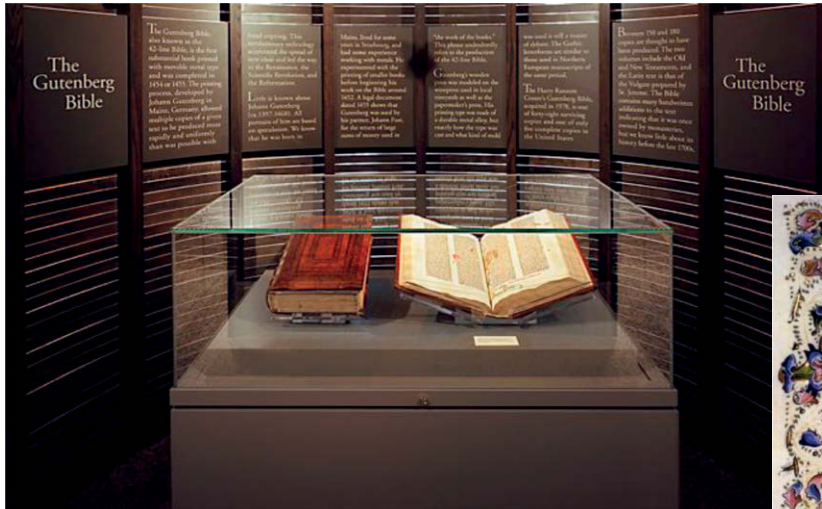 The
Gutenberg
Bible
The Gutenberg Bible,
also known as the
42-line Bible, is the first
substantial book printed
with movable metal type
and was completed in
1454 or 1455. The printing
process, developed by
Johann Gutenberg in
Mainz, Germany, allowed
multiple copies of a given
text to be produced more
rapidly and uniformly
than was possible with
hand copying. This
revolutionary technology
accelerated the spread of
new ideas and led the way
to the Renaissance, the
Scientific Revolution, and
the Reformation.
Little is known about
Johann Gutenberg
portraits of him are based
on speculation. We know
that he was born in
Mainz, lived for some
years in Strasbourg, and
had some experience
working with metals. He
experimented with the
printing of smaller books
before beginning his
work on the Bible around
1452. A legal document
dated 1455 shows that
Gutenberg was sued by
his partner, Johann Fust,
for the return of large
sums of money used in
"the work of the books."
This phrase undoubtedly
refers to the production
of the 42-line Bible.
Gutenberg's wooden
press was modeled on the
winepress used in local
vineyards as well as the
papermaker's press. His
printing type was made of
a durable metal alloy, but
exactly how the type was
cast and what kind of mold
was used is still a matter
of debate. The Gothic
letterforms are similar to
those used in Northern
European manuscripts of
the same period.
The Harry Ransom
Center's Gutenberg Bible,
acquired in 1978, is one
of forty-eight surviving
copies and one of only
five complete copies in
the United States.
Between 150 and 180
copies are thought to have
been produced. The two
volumes include the Old
and New Testaments, and
the Latin text is that of
the Vulgate prepared by
St. Jerome. The Bible
contains many handwritten
additions to the text
indicating that it was once
owned by monasteries,
but we know little about its
history before the late 1700s.
The
Gutenberg
Bible